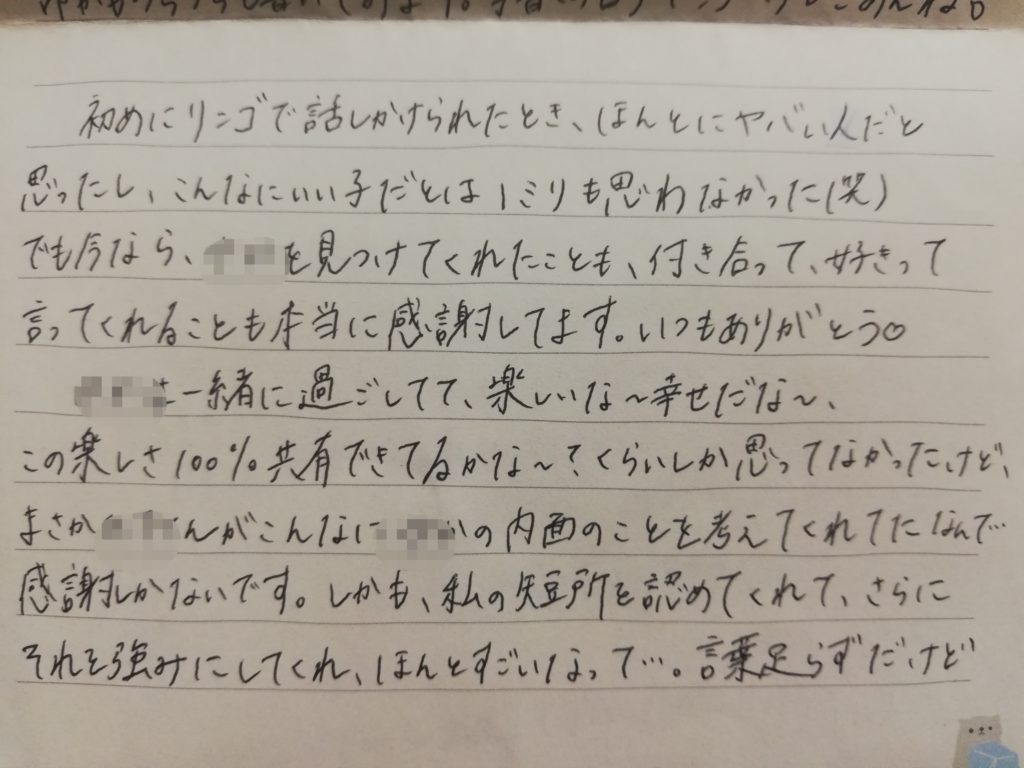 初めにリンゴで話しかけられたとき、ほんとにヤバい人だと
思ったし、こんなにいい子だとは1ミリも思わなかった(笑)
でも今なら、を見つけてくれたことも、付き合って、好きって
言ってくれることも本当に感謝してます。いつもありがとう♡
は一緒に過ごしてて、楽しいな〜幸せだな〜、
この楽しさ100%共有できてるかな〜?くらいしか思ってなかったけど、
まさかんがこんなにの内面のことを考えてくれてたなんて…
感謝しかないです。しかも、私の短所を認めてくれて、さらに
それを強みにしてくれ、ほんとすごいなって…。言葉足らずだけど